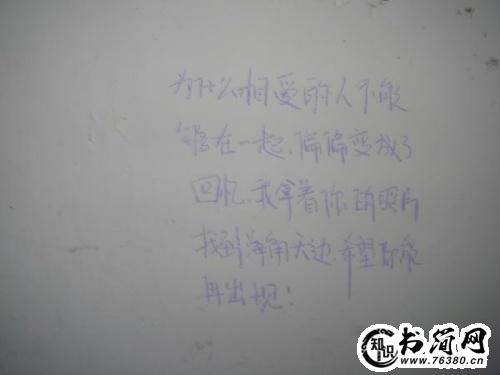 为什么相爱的人不能
够在一起、偏偏变放了
回忆、我拿着你的照片
找到海角天边、希望你能
再出现!
知识
书简网
www.76380.cn